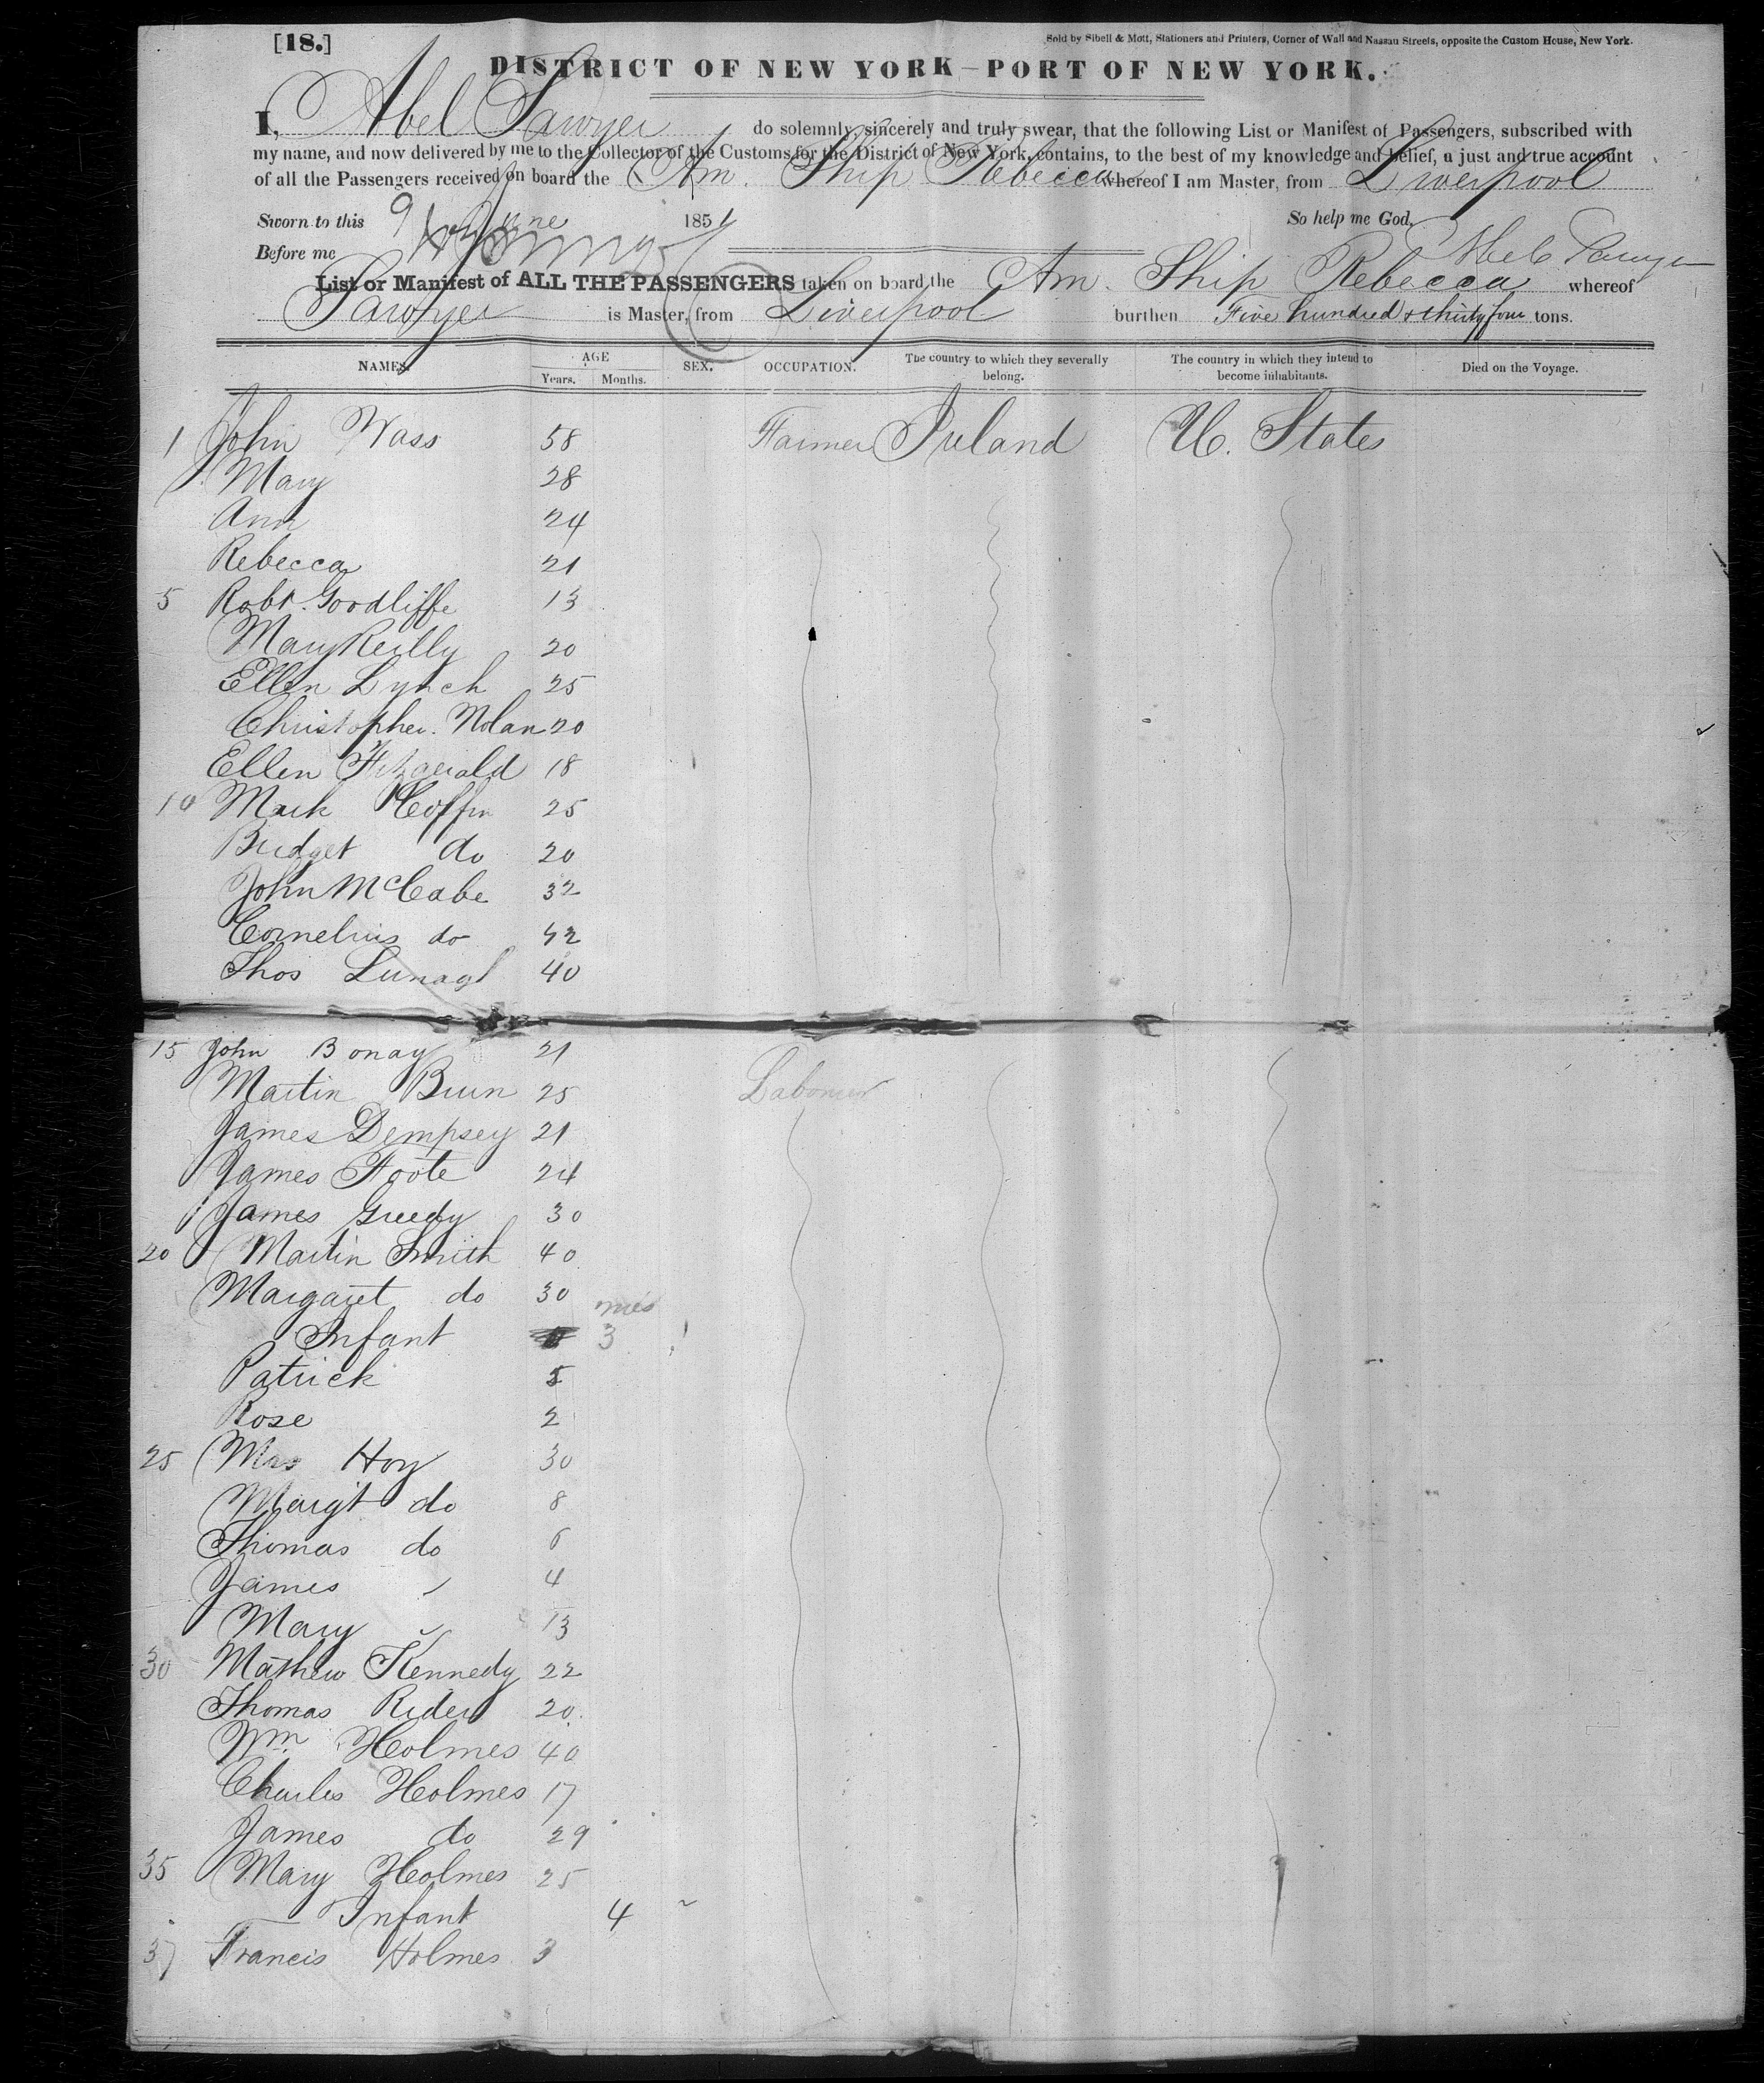 [18.]
Sold by Sibell & Mott, Stationers and Printers, Corner of Wall and Nassau Streets, opposite the Custom House, New York.
DISTRICT OF NEW YORK—PORT OF NEW YORK.
I, Abel Sawyer do solemnly, sincerely and truly swear, that the following List or Manifest of Passengers, subscribed with
my name, and now delivered by me to the Collector of the Customs for the District of New York, contains, to the best of my knowledge and belief, a just and true account
of all the Passengers received on board the Am. Ship Rebecca whereof I am Master, from Liverpool
Sworn to this 9 June 1851 So help me God.
Before me Abel Sawyer
List or Manifest of ALL THE PASSENGERS taken on board the Am. Ship Rebecca whereof
Sawyer is Master, from Liverpool burthen Five hundred & thirty four tons.
NAMES. AGE SEX. OCCUPATION. The country to which they severally belong. The country in which they intend to become inhabitants. Died on the Voyage.
Years. Months.
1 John Wass 58 Farmer Ireland U. States
Mary 28
Ann 24
Rebecca 21
5 Robt. Goodliffe 13
Mary Reilly 20
Ellen Lynch 25
Christopher. Nolan 20
Ellen Fitzgerald 18
10 Mark Coffin 25
Bridget do 20
John McCabe 32
Cornelius do
Thos 40
15 John Bonay 21
Martin Brien 25 Labourer
James Dempsey 21
James Foote 24
James Greedy 30
20 Martin Smith 40
Margaret do 30 mos
Infant 3
Patrick 5
Rose 2
25 Mrs Hoy 30
Margt do 8
Thomas do 6
James 4
Mary 13
30 Mathew Kennedy 22
Thomas Rider 20
Wm Holmes 40
Charles Holmes 17
James do 29
35 Mary Holmes 25
Infant 4
37 Francis Holmes 3